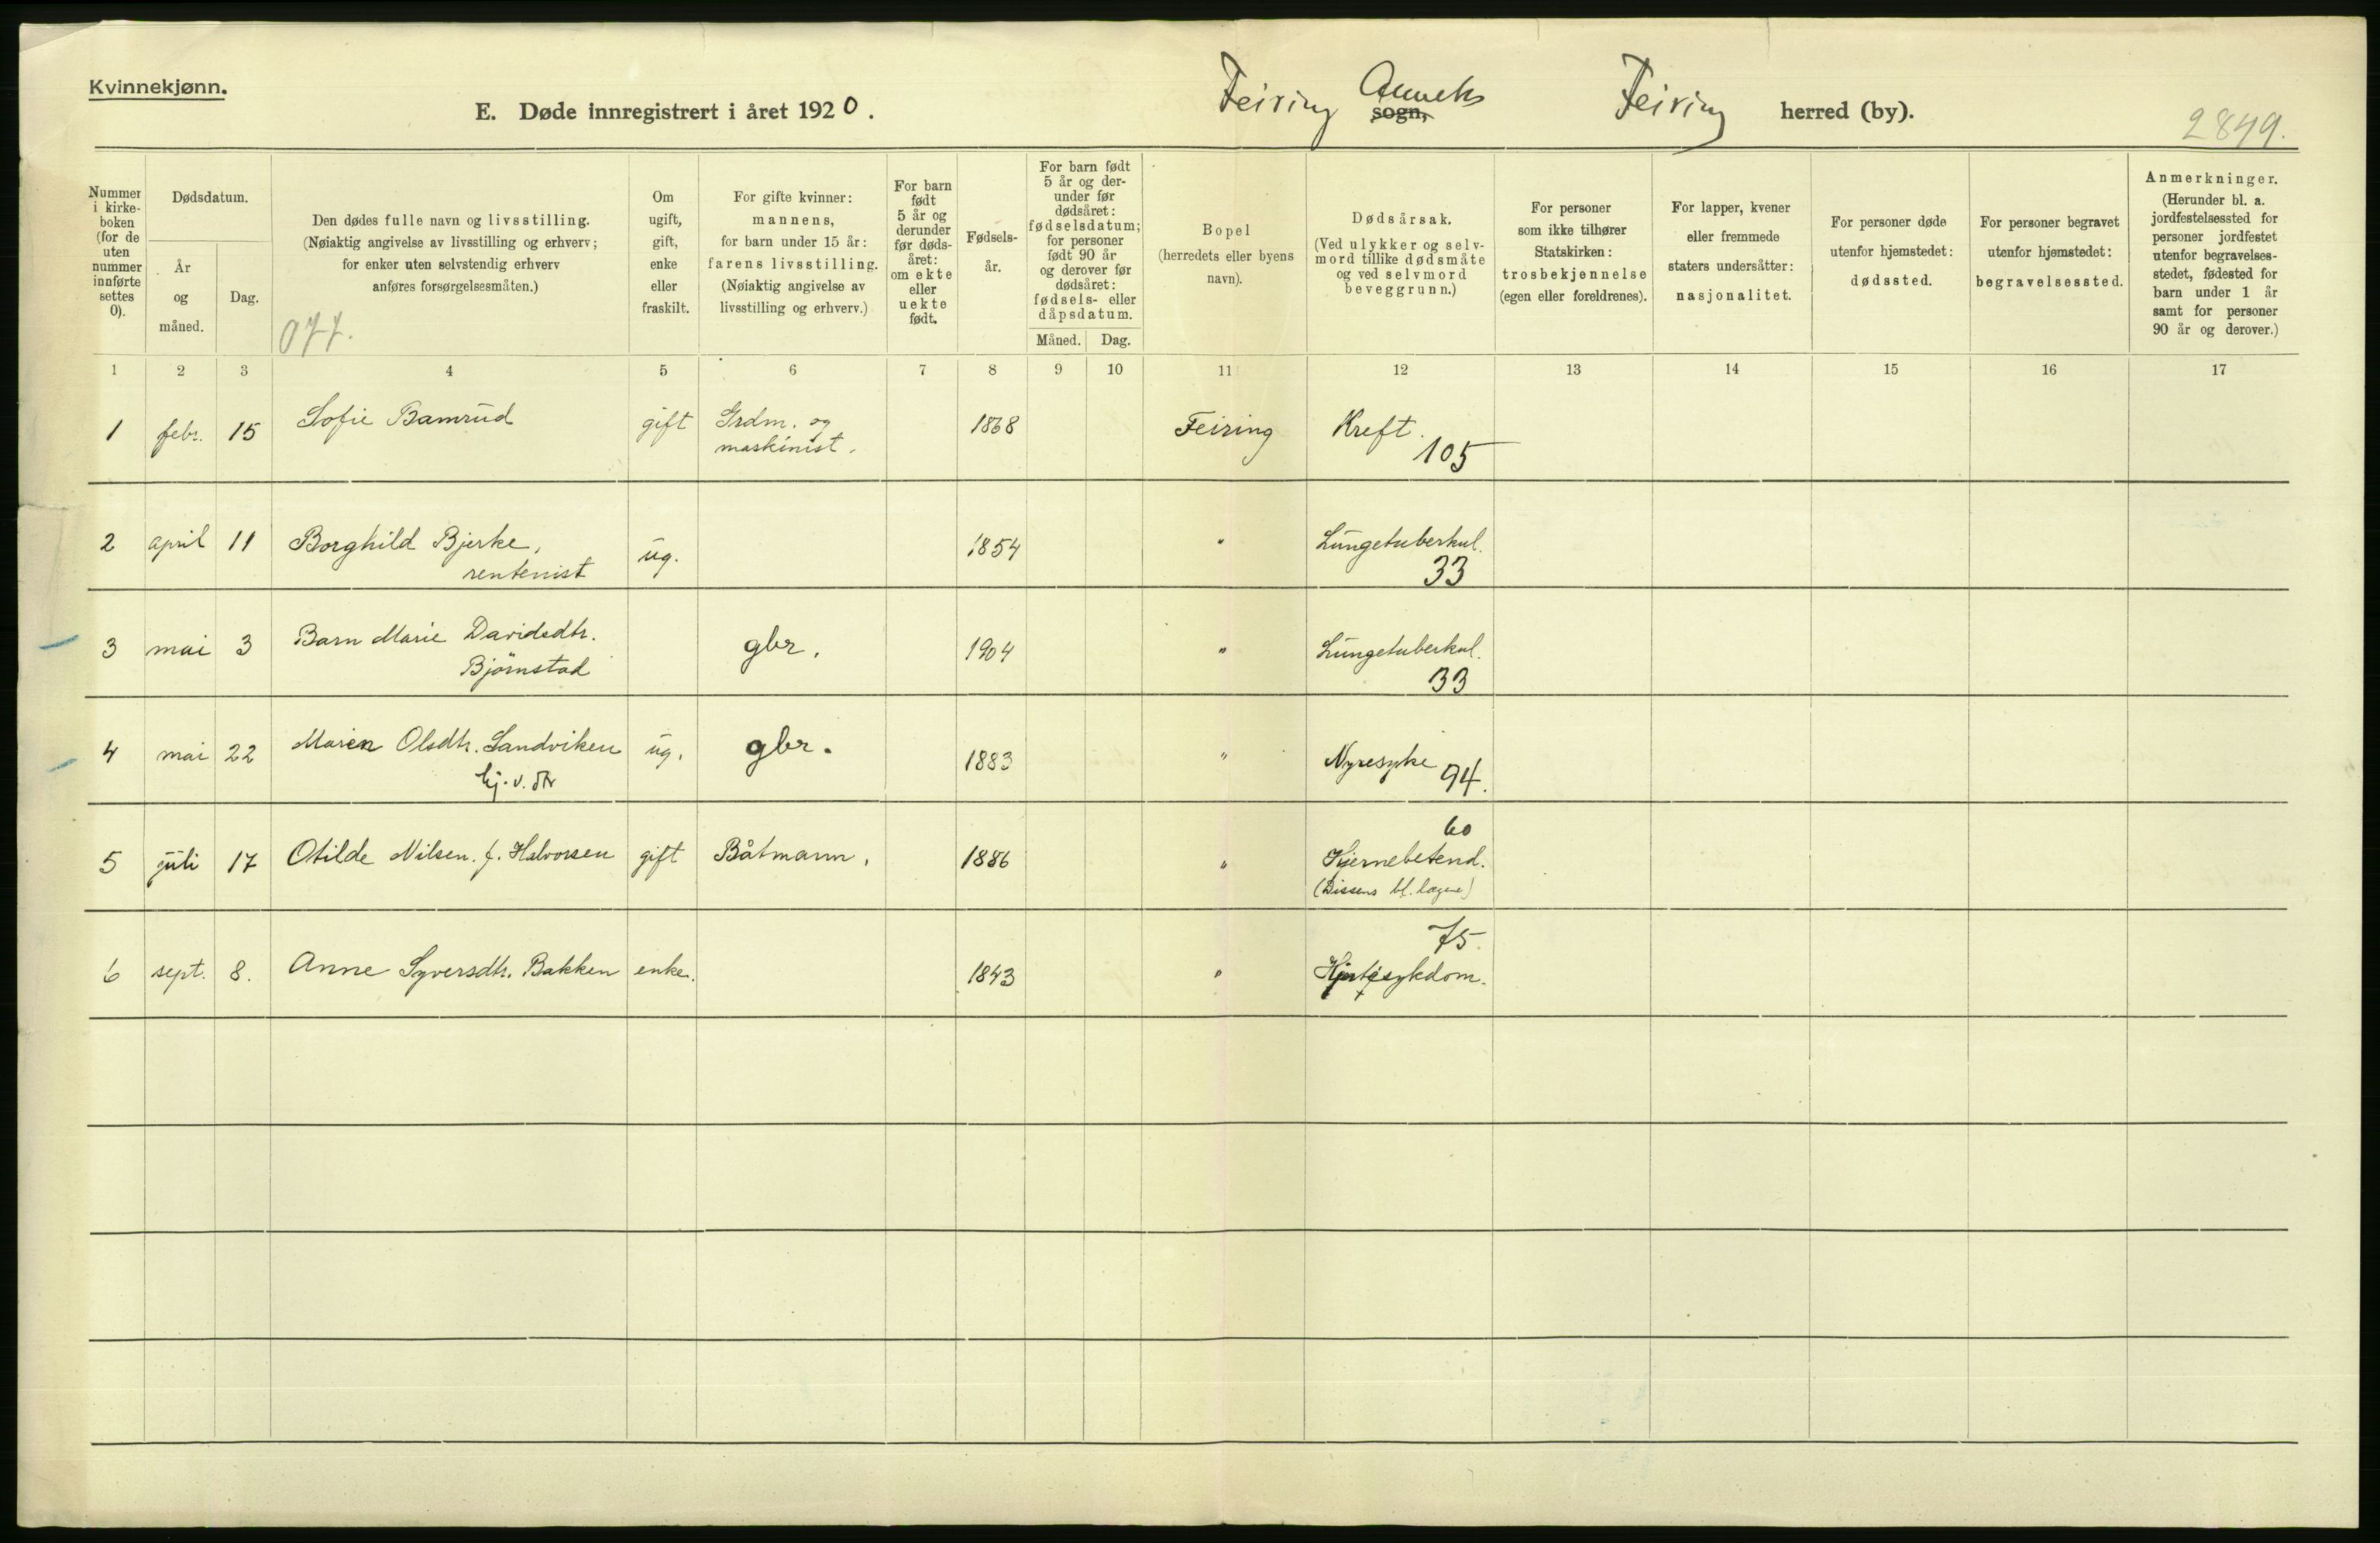 Kvinnekjønn.
E. Døde innregistrert i året 1920.
Feiring Anneks sogn, Feiring herred (by).
2849.
Nummer i kirkeboken (for de uten nummer innførte settes 0).
Dødsdatum.
År og måned.
Dag.
Den dødes fulle navn og livsstilling.
(Nøiaktig angivelse av livsstilling og erhverv;
for enker uten selvstendig erhverv
anføres forsørgelsesmåten.)
077.
Om ugift, gift, enke eller fraskilt.
For gifte kvinner:
mannens,
for barn under 15 år:
farens livsstilling.
(Nøiaktig angivelse av
livsstilling og erhverv.)
For barn født 5 år og derunder før dødsåret: om ekte eller uekte født.
Fødselsår.
For barn født 5 år og derunder før dødsåret: fødselsdatum; for personer født 90 år og derover før dødsåret: fødsels- eller dåpsdatum.
Måned. Dag.
Bopel
(herredets eller byens
navn).
Dødsårsak.
(Ved ulykker og selvmord tillike dødsmåte og ved selvmord beveggrunn.)
For personer
som ikke tilhører
Statskirken:
trosbekjennelse
(egen eller foreldrenes).
For lapper, kvener
eller fremmede
staters undersåtter:
nasjonalitet.
For personer døde
utenfor hjemstedet:
dødssted.
For personer begravet
utenfor hjemstedet:
begravelsessted.
Anmerkninger.
(Herunder bl. a.
jordfestelsessted for
personer jordfestet
utenfor begravelses-
stedet, fødested for
barn under 1 år
samt for personer
90 år og derover.)
1 2 3 4 5 6 7 8 9 10 11 12 13 14 15 16 17
1 febr. 15 Sofie Bamrud gift Grdm. og maskinist. 1868 Feiring Kreft. 105
2 april 11 Borghild Bjerke, rentenist ug. 1854 " Lungetuberkul. 33
3 mai 3 Barn Marie Davidsdtr. Bjørnstad gbr. 1904 " Lungetuberkul. 33
4 mai 22 Maren Olsdtr. Sandviken hj. v. dtr ug. gbr. 1883 " Nyresyke 94.
5 juli 17 Otilde Nilsen f. Halvorsen gift Båtmann. 1886 " 60 Hjernebetend.
6 sept. 8. Anne Syversdtr. Bakken enke. 1843 " 75. Hjertesykdom.